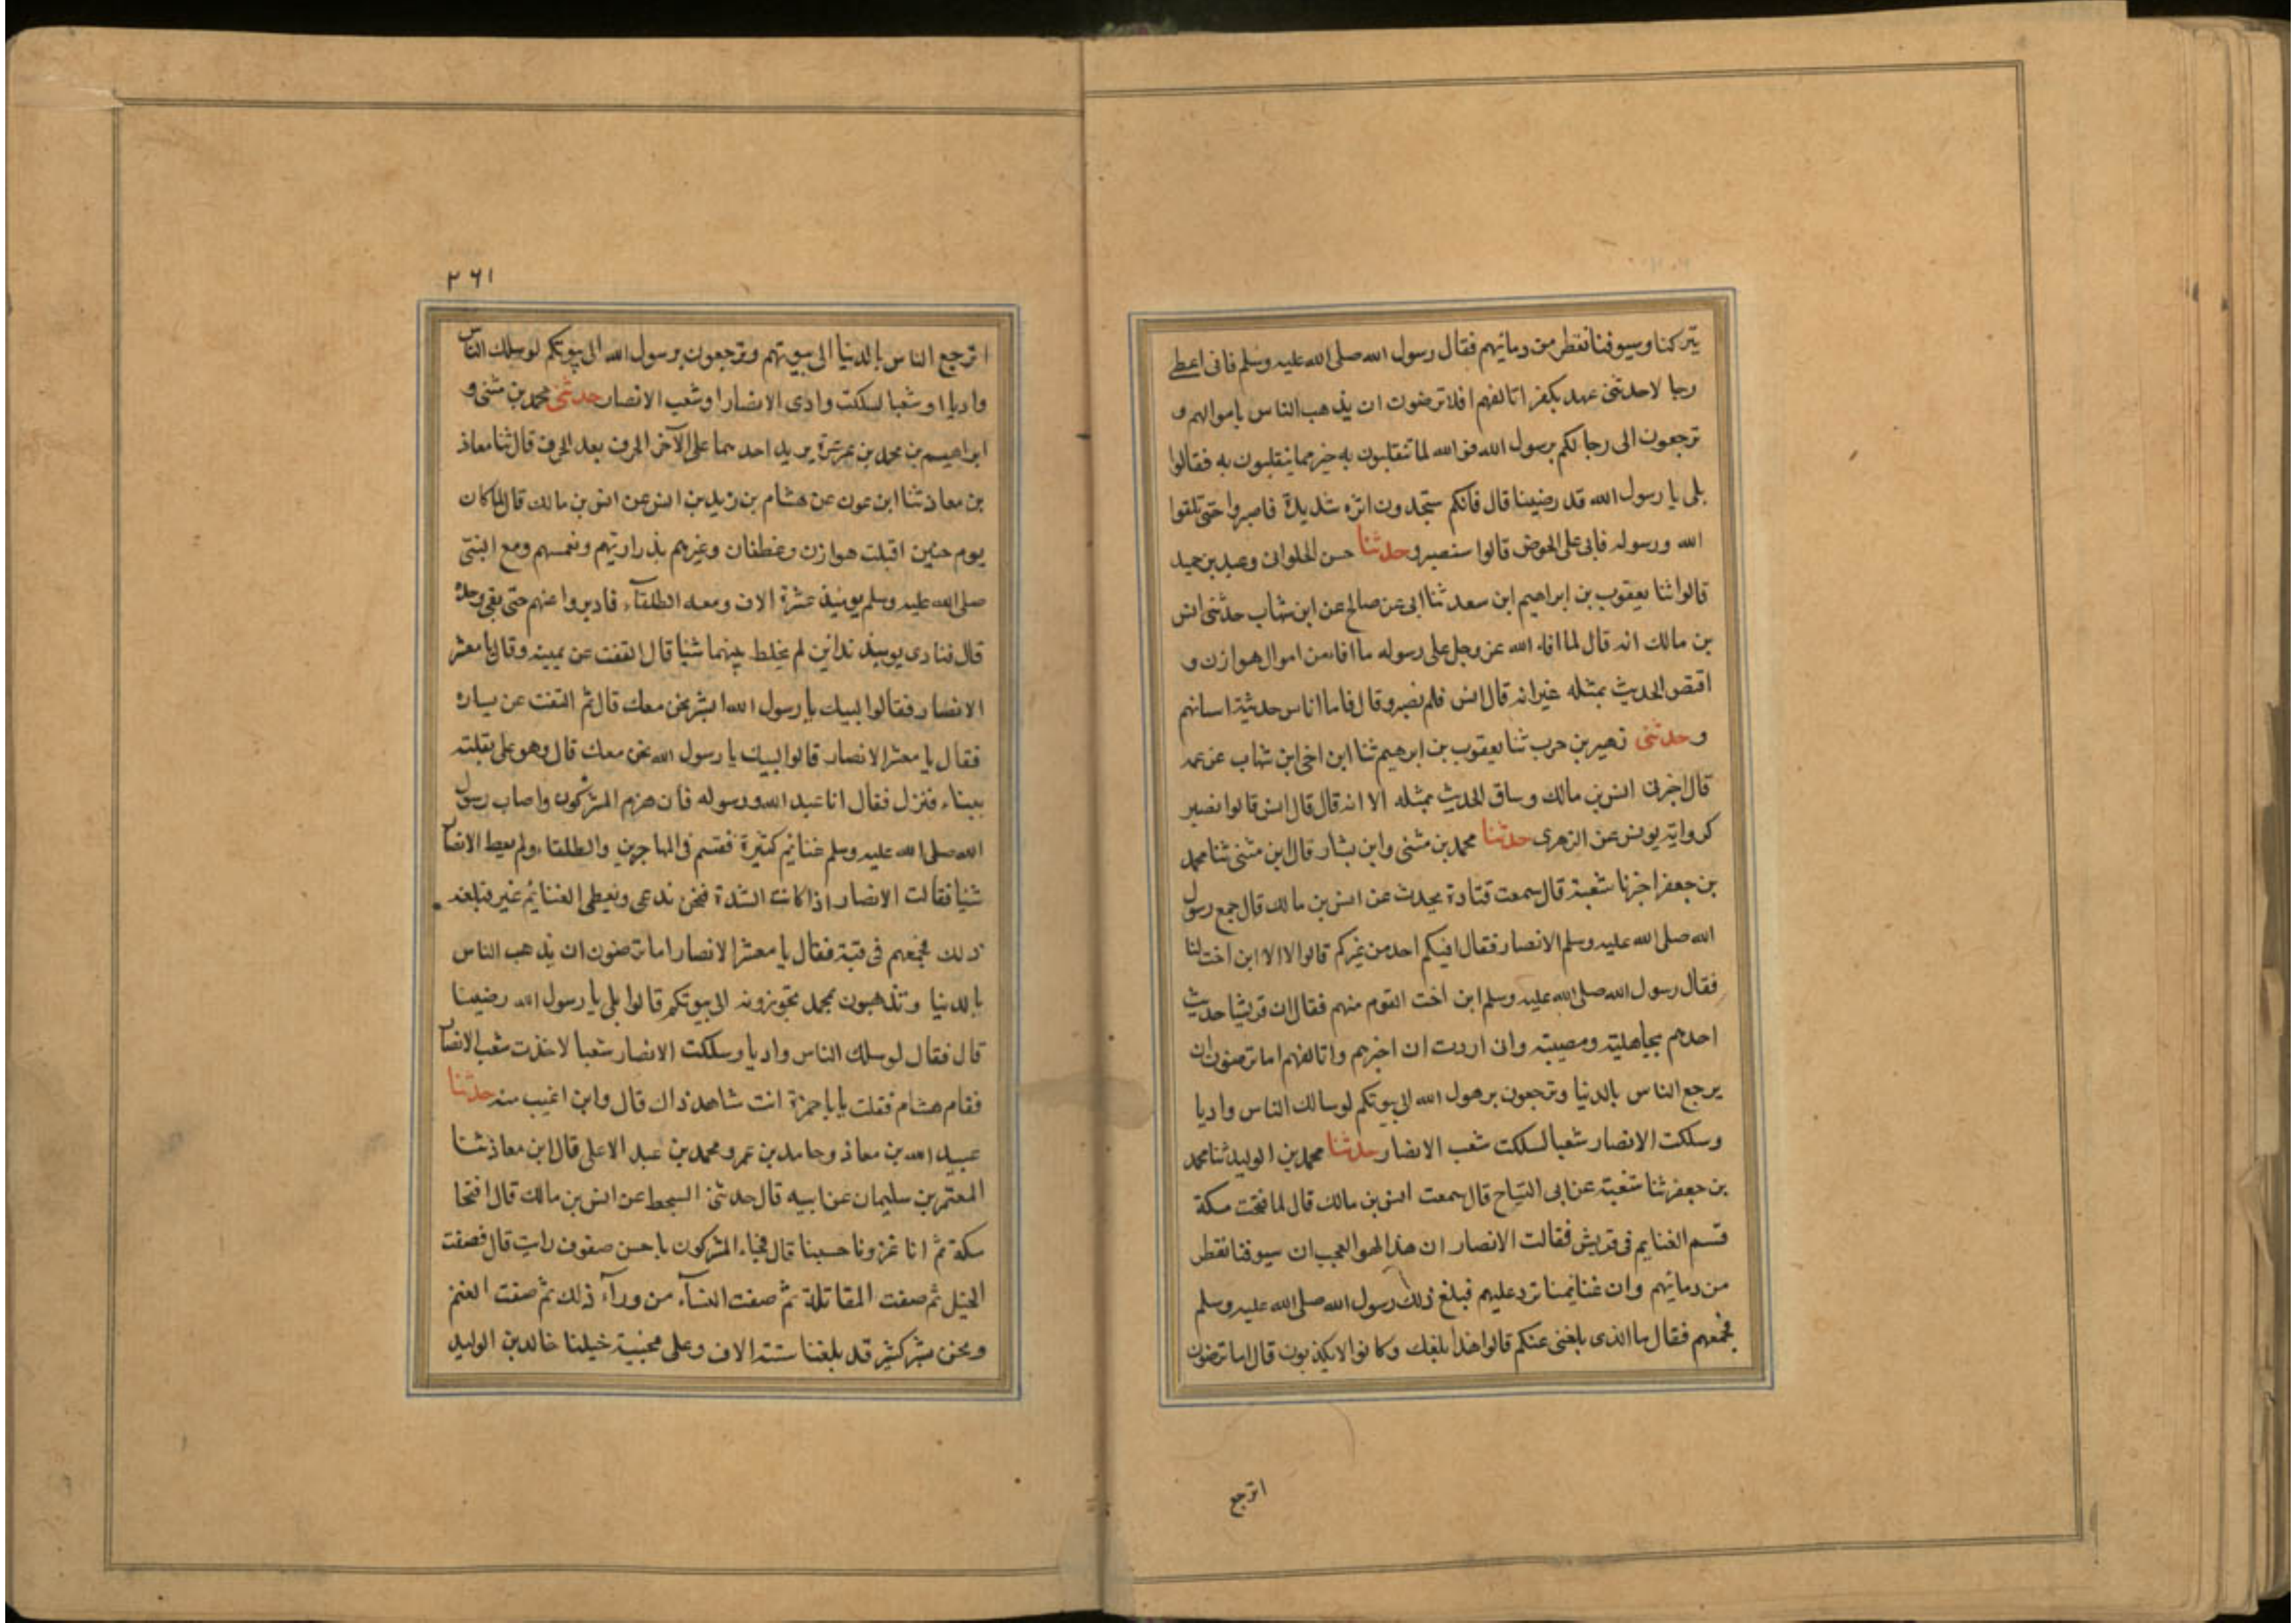 يتركنا وسيوفنا تقطر من دمائهم فقال رسول الله صلى الله عليه وسلم فانى اعطى
رجا لاحدثنى عهد بكفر اتالفهم افلا ترضون ان يذهب الناس باموالهم و
ترجعون الى رجا لكم برسول الله فو الله لما تنقلبون به خير مما ينقلبون به فقالوا
بلى يا رسول الله قد رضينا قال فانكم ستجدون اثرة شديدة فاصبروا حتى تلقوا
الله ورسوله فانى على الحوض قالوا سنصبر وحدثنا حسن الحلوانى وعبد بن حميد
قالوا ثنا يعقوب بن ابراهيم ابن سعد ثنا ابى عن صالح عن ابن شهاب حدثنى انس
بن مالك انه قال لما افاء الله عز وجل على رسوله ما افاء من اموال هوازن و
اقتص الحديث بمثله غير انه قال انس فلم نصبر وقال فاما اناس حديثة اسنانهم
وحدثنى زهير بن حرب ثنا يعقوب بن ابرهيم ثنا ابن اخى ابن شهاب عن عمه
قال اخبرنى انس بن مالك وساق الحديث بمثله الا انه قال قال انس قالوا نصبر
كرواية يونس عن الزهرى حدثنا محمد بن مثنى وابن بشار قال ابن مثنى ثنا محمد
بن جعفر اخبرنا شعبة قال سمعت قتادة يحدث عن انس بن مالك قال جمع رسول
الله صلى الله عليه وسلم الانصار فقال افيكم احد من غيركم قالوا لا الا ابن اخت لنا
فقال رسول الله صلى الله عليه وسلم ابن اخت القوم منهم فقال ان قريشا حديث
احدهم بجاهلية ومصيبة وان اردت ان اخبرهم واتالفهم اما ترضون ان
يرجع الناس بالدنيا وترجعون برهول الله الى بيوتكم لوسالك الناس واديا
وسلكت الانصار شعبا لسلكت شعب الانصار حدثنا محمد بن الوليد ثنا محمد
بن جعفر ثنا شعبة عن ابى التياح قال سمعت انس بن مالك قال لما فتحت مكة
قسم الغنايم فى قريش فقالت الانصار ان هذا لهو العجب ان سيوفنا تقطر
من دمائهم وان غنايمنا ترد عليهم فبلغ ذلك رسول الله صلى الله عليه وسلم
فجمعهم فقال ما الذى بلغنى عنكم قالوا هذا بلغك وكانوا لا يكذبون قال اما ترضون
اترجع
٢٦١
اترجع الناس بالدنيا الى بيوتهم وترجعون برسول الله الى بيوتكم لو سلك الناس
واديا او شعبا لسلكت وادى الانصار او شعب الانصار حدثنى محمد بن مثنى و
ابراهيم بن محمد بن عرعرة يزيد احدهما على الآخر الحرف بعد الحرف قال ثنا معاذ
بن معاذ ثنا ابن عون عن هشام بن زيد بن انس عن انس بن مالك قال لما كان
يوم حنين اقبلت هوازن وغطفان وغيرهم بذراريهم ونعمهم ومع النبى
صلى الله عليه وسلم يومئذ عشرة الاف ومعه الطلقآء فادبروا عنهم حتى بقى وحده
قال فنادى يومئذ ندائين لم يخلط بينهما شيا قال التفت عن يمينه وقال يا معشر
الانصار فقالوا لبيك يا رسول الله ابشر نحن معك قال ثم التفت عن يساره
فقال يا معشر الانصار قالوا لبيك يا رسول الله نحن معك قال وهو على بغلته
بيضاء فنزل فقال انا عبد الله ورسوله فان هزم المشركون واصاب رسول
الله صلى الله عليه وسلم غنايم كثيرة فقسم فى المهاجرين والطلقاء ولم يعط الانصار
شيا فقالت الانصار اذا كانت الشدة فنحن ندعى ونعطى الغنايم غير فبلغه
ذلك فجمعهم فى قبة فقال يا معشر الانصار اما ترضون ان يذهب الناس
بالدنيا وتذهبون بمحمد تحوزونه الى بيوتكم قالوا بلى يا رسول الله رضينا
قال فقال لو سلك الناس واديا وسلكت الانصار شعبا لاخذت شعب الانصار
فقام هشام فقلت يا با حمزة انت شاهد ذاك قال واين اغيب منه حدثنا
عبيد الله بن معاذ وحامد بن عمر ومحمد بن عبد الاعلى قال ابن معاذ ثنا
المعتمر بن سليمان عن ابيه قال حدثنى السمط عن انس بن مالك قال افتتحنا
مكة ثم انا غزونا حنينا قال فجاء المشركون باحسن صفوف رايت قال فصفت
الخيل ثم صفت المقاتلة ثم صفت النسآء من ورآء ذلك ثم صفت الغنم
ونحن بشر كثير قد بلغنا ستة الاف وعلى مجنبة خيلنا خالد بن الوليد